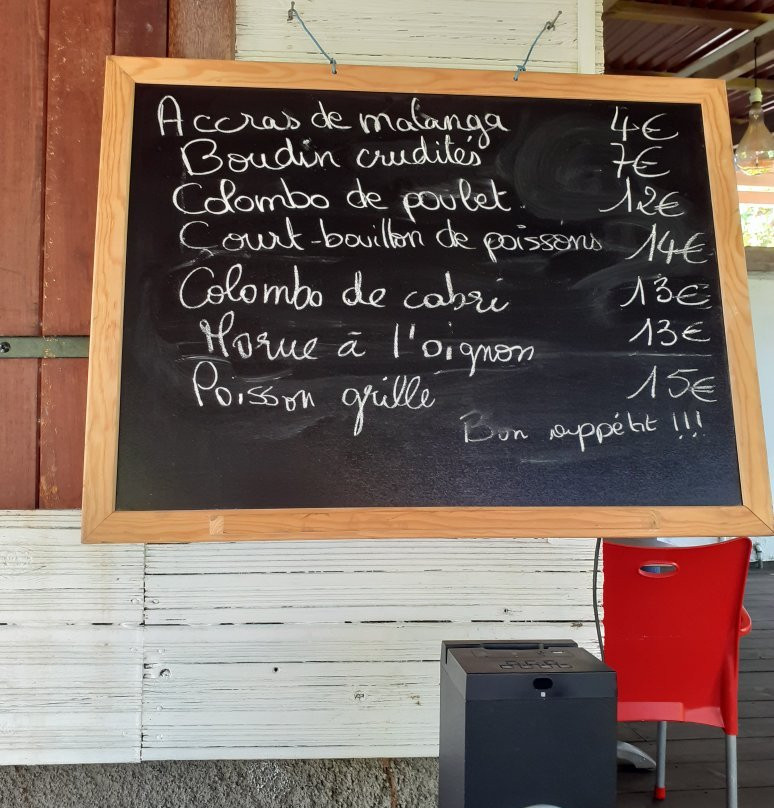 Accras de malanga 4€
Boudin crudités 7€
Colombo de poulet. 12€
Court-bouillon de poissons 14€
Colombo de cabri 13€
Morue à l'oignon 13€
Poisson grille 15€
Bon appétit !!!